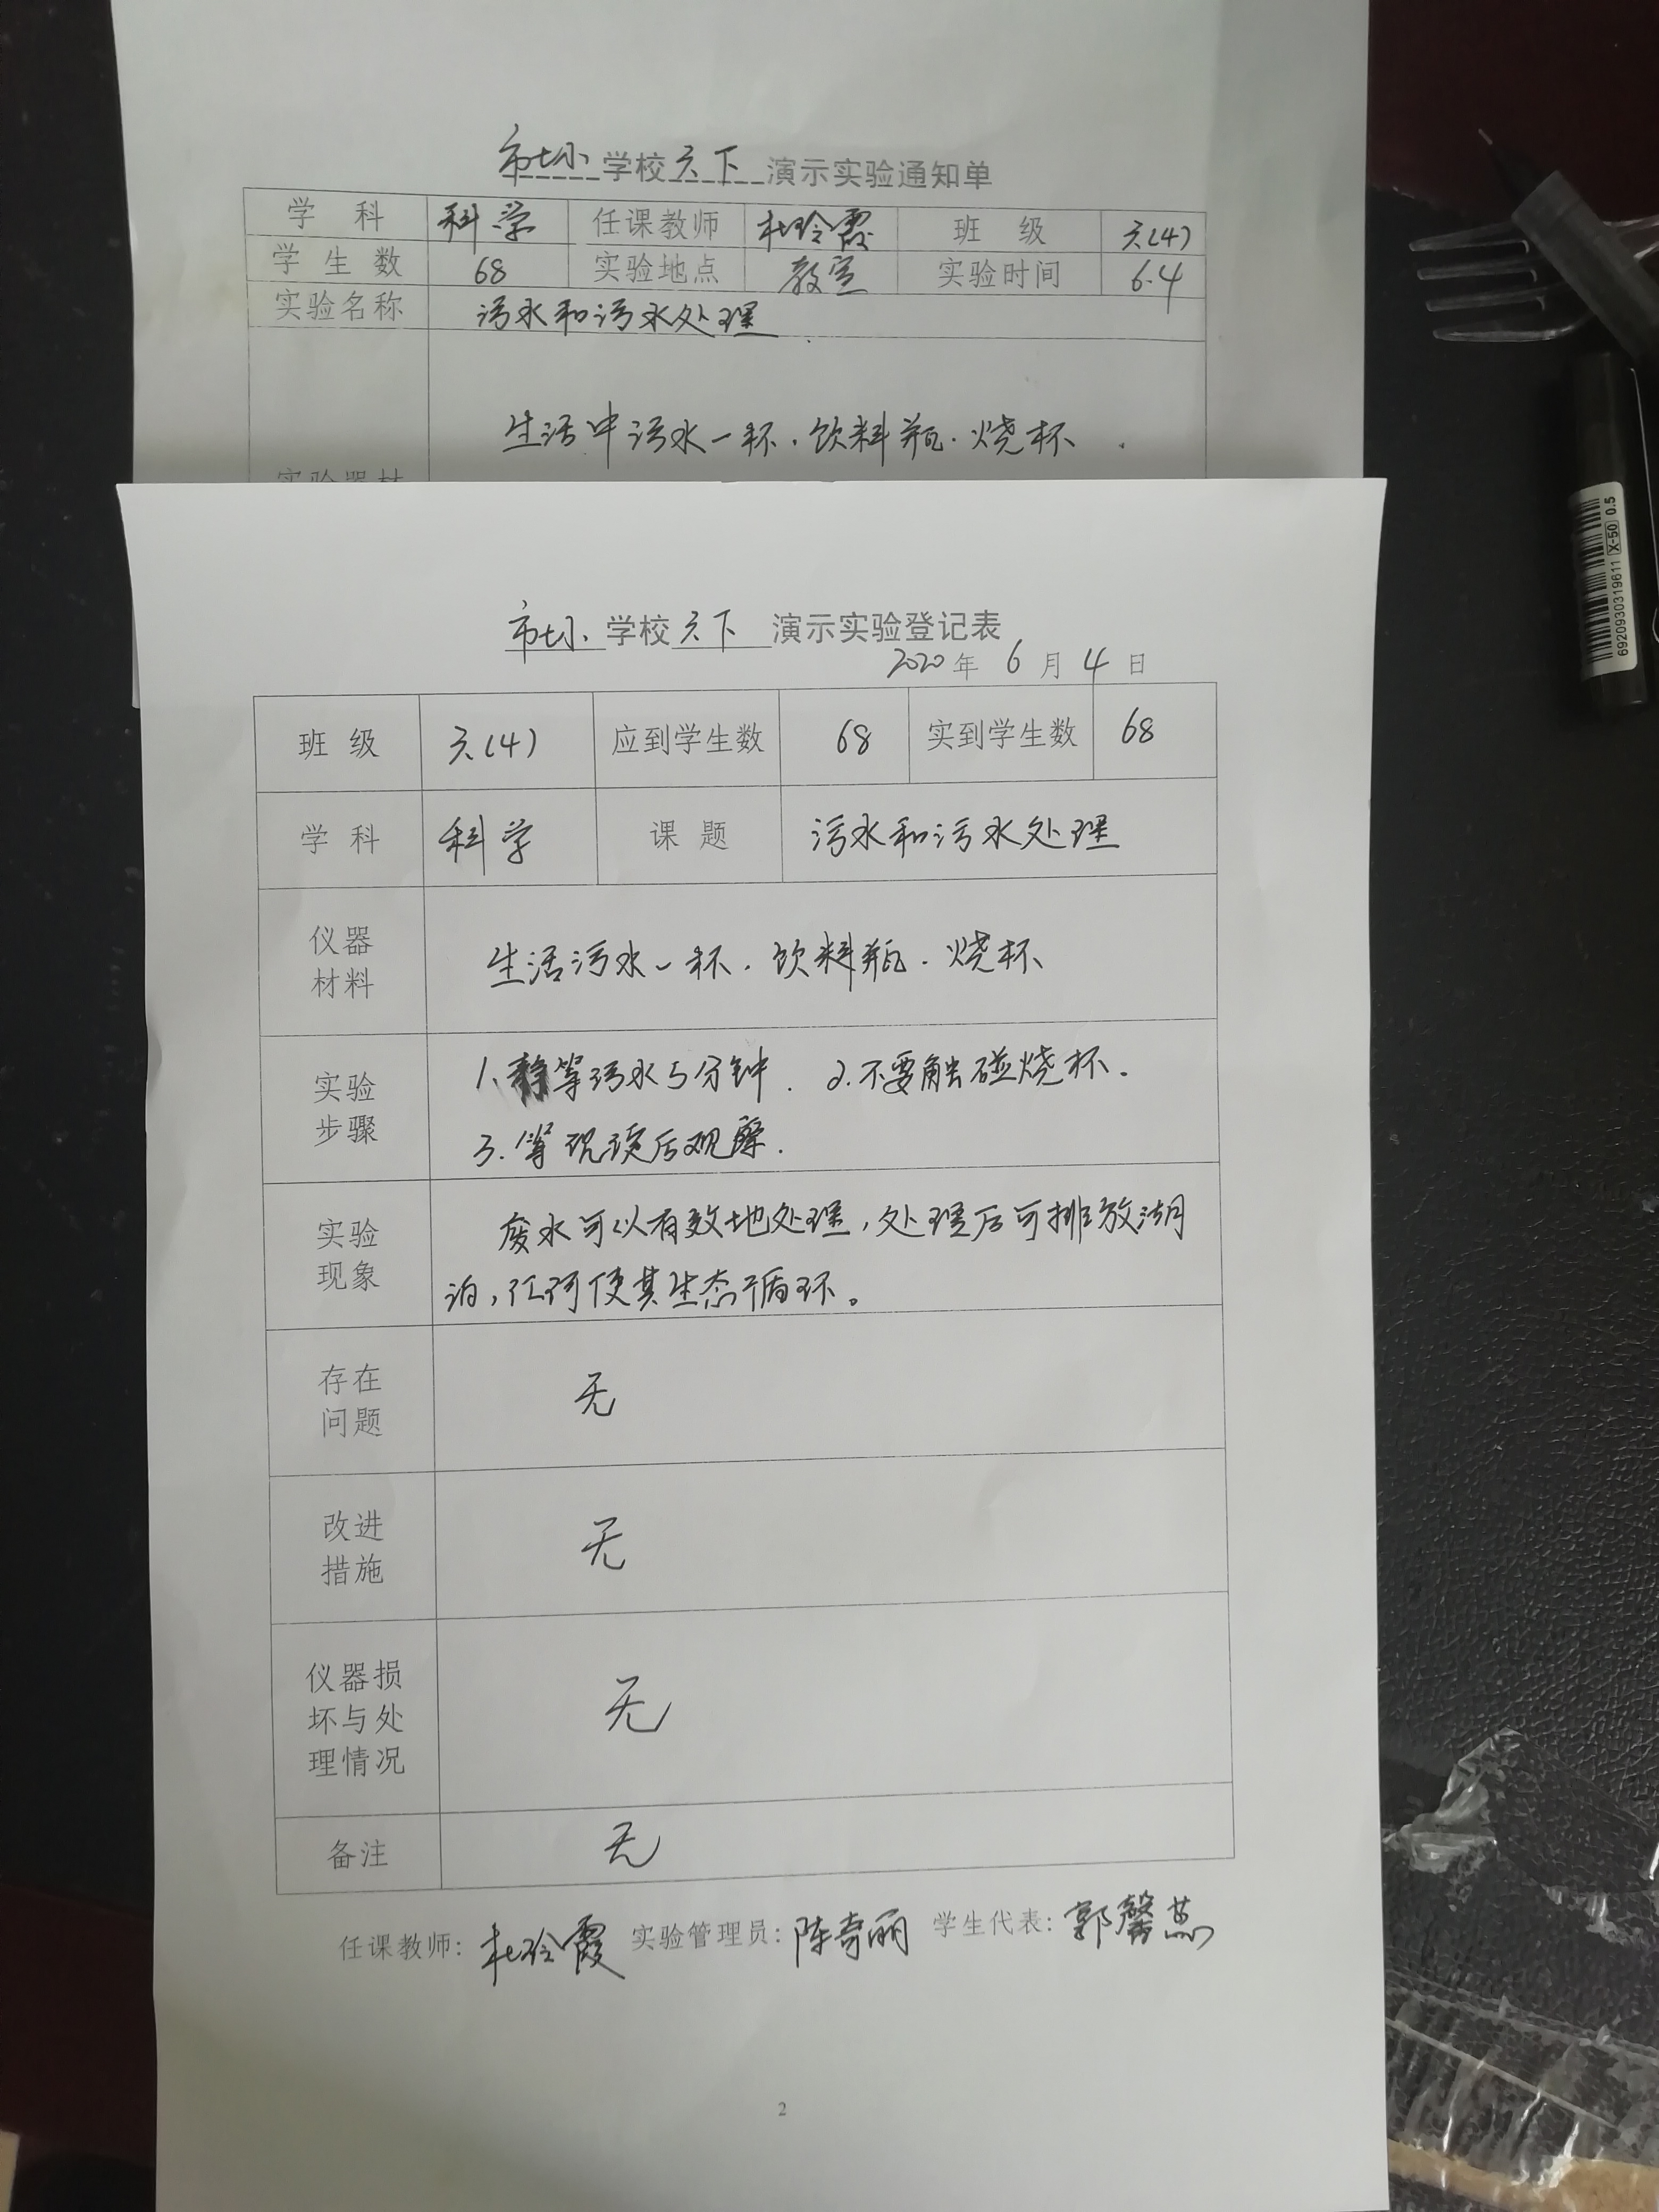 市七小学校六下演示实验通知单
学 科 科学 任课教师 杜玲霞 班 级 六(4)
学 生 数 68 实验地点 教室 实验时间 6.4
实验名称 污水和污水处理
生活中污水一杯.饮料瓶.烧杯.
实验器材
市七小学校六下演示实验登记表
2020年6月4日
班 级 六(4) 应到学生数 68 实到学生数 68
学 科 科学 课 题 污水和污水处理
仪器
材料
生活污水一杯.饮料瓶.烧杯
实验
步骤
1.静等污水5分钟. 2.不要触碰烧杯.
3.等沉淀后观察.
实验
现象
废水可以有效地处理,处理后可排放湖
泊,江河使其生态循环。
存在
问题
无
改进
措施
无
仪器损
坏与处
理情况
无
备注 无
任课教师:杜玲霞 实验管理员:陈奇丽 学生代表:郭馨
2
6920930319611 X-50 0.5